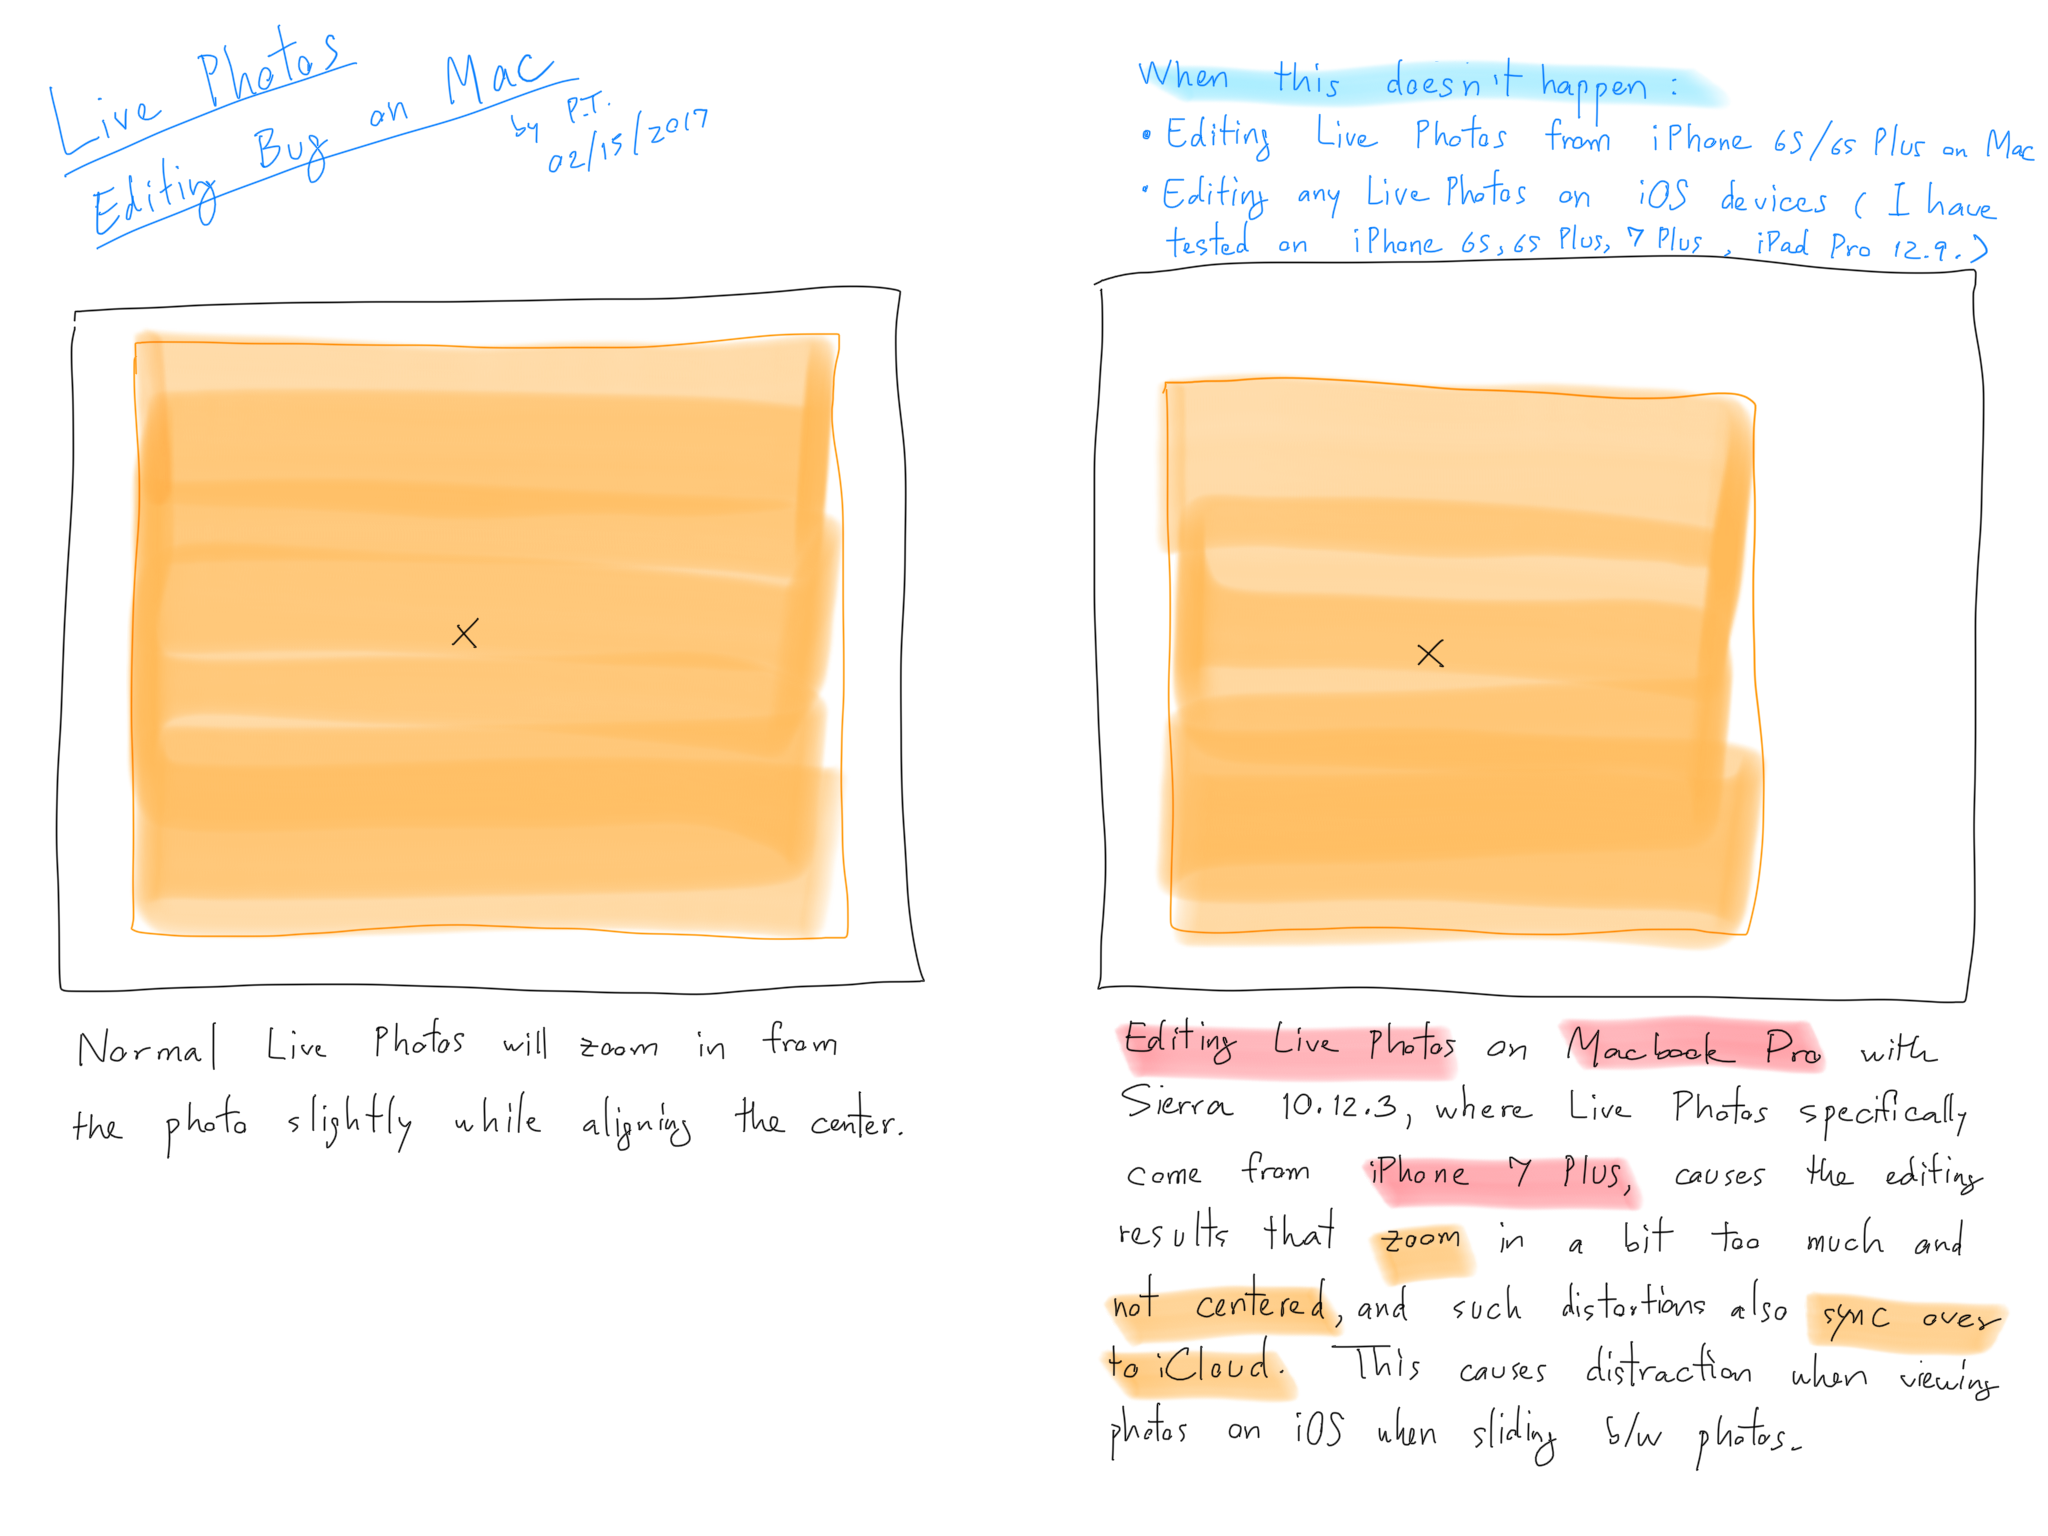 Live Photos
Editing Bug on Mac
by P.T.
02/15/2017
When this doesn't happen:
• Editing Live Photos from iPhone 6S/6S Plus on Mac
• Editing any Live Photos on iOS devices (I have
tested on iPhone 6S, 6S Plus, 7 Plus, iPad Pro 12.9.)
X
X
Normal Live Photos will zoom in from
the photo slightly while aligning the center.
Editing Live Photos on Macbook Pro with
Sierra 10.12.3, where Live Photos specifically
come from iPhone 7 Plus, causes the editing
results that zoom in a bit too much and
not centered, and such distortions also sync over
to iCloud. This causes distraction when viewing
photos on iOS when sliding b/w photos.